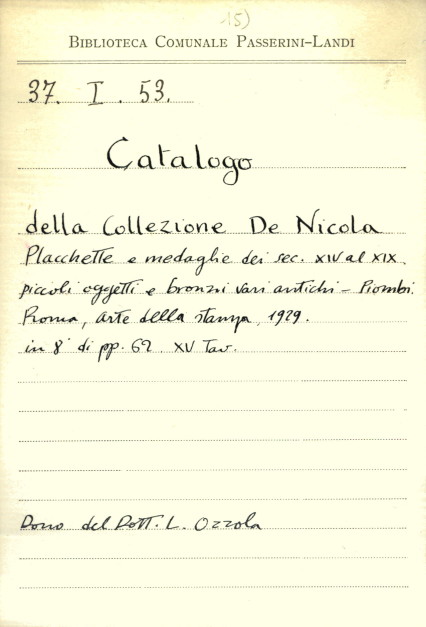 15)
BIBLIOTECA COMUNALE PASSERINI-LANDI
37. I. 53.
Catalogo
della Collezione De Nicola
Placchette e medaglie dei sec. XIV al XIX.
piccoli oggetti e bronzi vari antichi - Piombi.
Roma, arte della stampa, 1929.
in 8° di pp. 62. XV Tav.
Dono del Dott. L. Ozzola